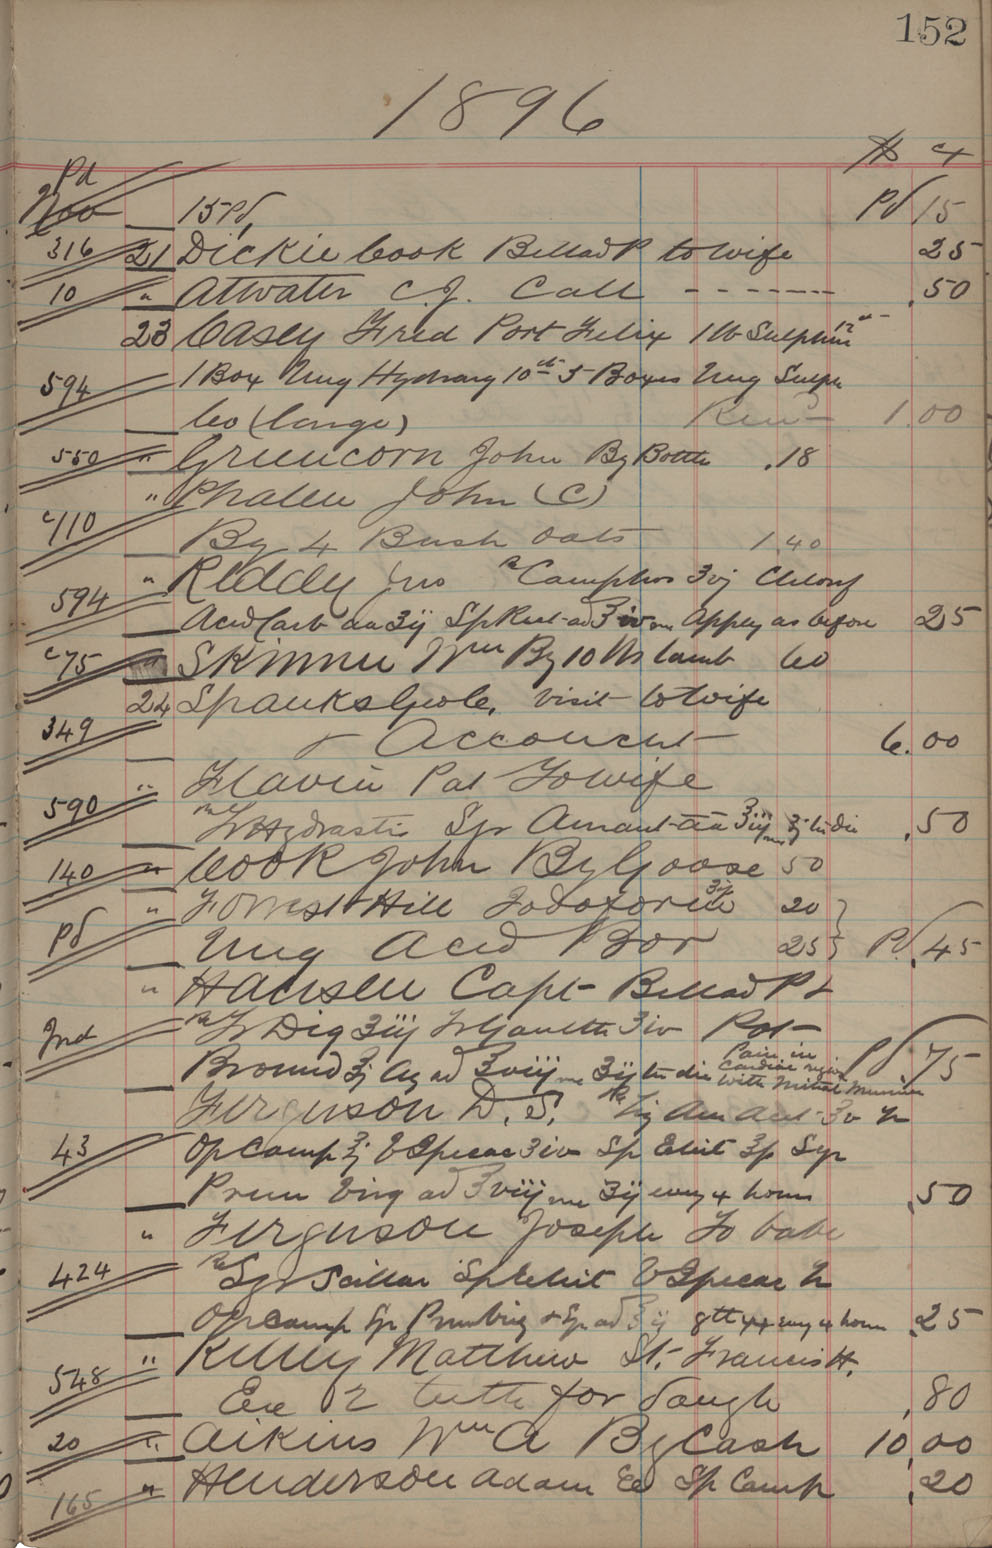 152
1896
$ ct
Pd
Nov 15 Pd, Pd 15
316 21 Dickie Cook Bellad P to wife 25
10 " Attwater C.J. Call - - - - - - - .50
23 Casey Fred Port Felix 1 lb Sulphur 12
594 1 Box Ung Hydrarg 10 ct 5 Boxes Ung Sulph
Co (large) 1.00
550 " Greencorn John By Bottle .18
" Phalen John (C)
c/110 By 4 Bush oats 1.40
" Reddy Jno Rx Camphor ʒvj Chlorof
594 Acid Carb aa ʒij Sp Rect ad ℥iv m Apply as before 25
c75 Skinner Wm By 10 lbs lamb 60
24 Spanks Geo C. visit to wife
349 Account 6.00
" Flavin Pat To wife
590 Rx Tr Hydrastis Syr Aurant aa ℥iij m ʒj in die .50
140 " Cook John By Goose 50
" Forrest Hill Iodoform 20 }
Pd Ung Acid Bor 25 } Pd .45
" Hansen Capt Bellad Pl
Ind Rx Tr Dig ʒiij Tr ʒiv Pot
Bromid ʒj Aq ad ℥viij m ʒij in die Pain in Cardiac region with Mitral Murmur Pd .75
Ferguson D. S. Rx Liq Am Acet ʒv Tr
43 Op Camp ʒj V Ipecac ʒiv Sp ʒp Syr
Prun Virg ad ℥viij m ʒij every 4 hours .50
" Ferguson Joseph To babe
424 Rx Syr Scillae V Ipecac Tr
Op Camp Syr Prun Virg ad ℥ij every 4 hours .25
548 " Kelley Matthew St. Francis H.
Ext 2 teeth for daugh .80
20 " Aikins Wm A By Cash 10.00
165 " Henderson Adam Sp Camph .20